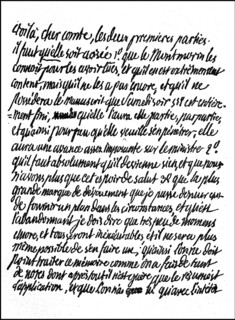 Voilà, cher comte, les deux premières parties.
il faut qu'elle soit avisée 1°. que le Montmorin les
connoit pour les avoir lûes, et qu'il en est extrêmement
content, mais qu'il ne les a pas encore, et qu'il ne
possédera le manuscrit que samedi soir s'il est entière-
ment fini, qu'elle l'aura elle partie, par partie,
et qu'ainsi pour peu qu'elle veuille s'en primer, elle
aura une avance assez importante sur le ministre 2°.
qu'il faut absolument qu'il devienne sien, et que nous
n'avons plus que cet espoir de salut 3° que la plus
grande marque de dévouement que je puisse donner
de fournir un plan dans les circonstances, et qu'en
l'abandonnant je dois dire que très peu de momens
encore, et tous seront inexécutables et il ne sera plus
même possible de s'en faire un, qu'ainsi l'on ne doit
point traiter ce mémoire comme on a fait de tant
de notes dont après tout il n'est pas que le résumé
d'application,